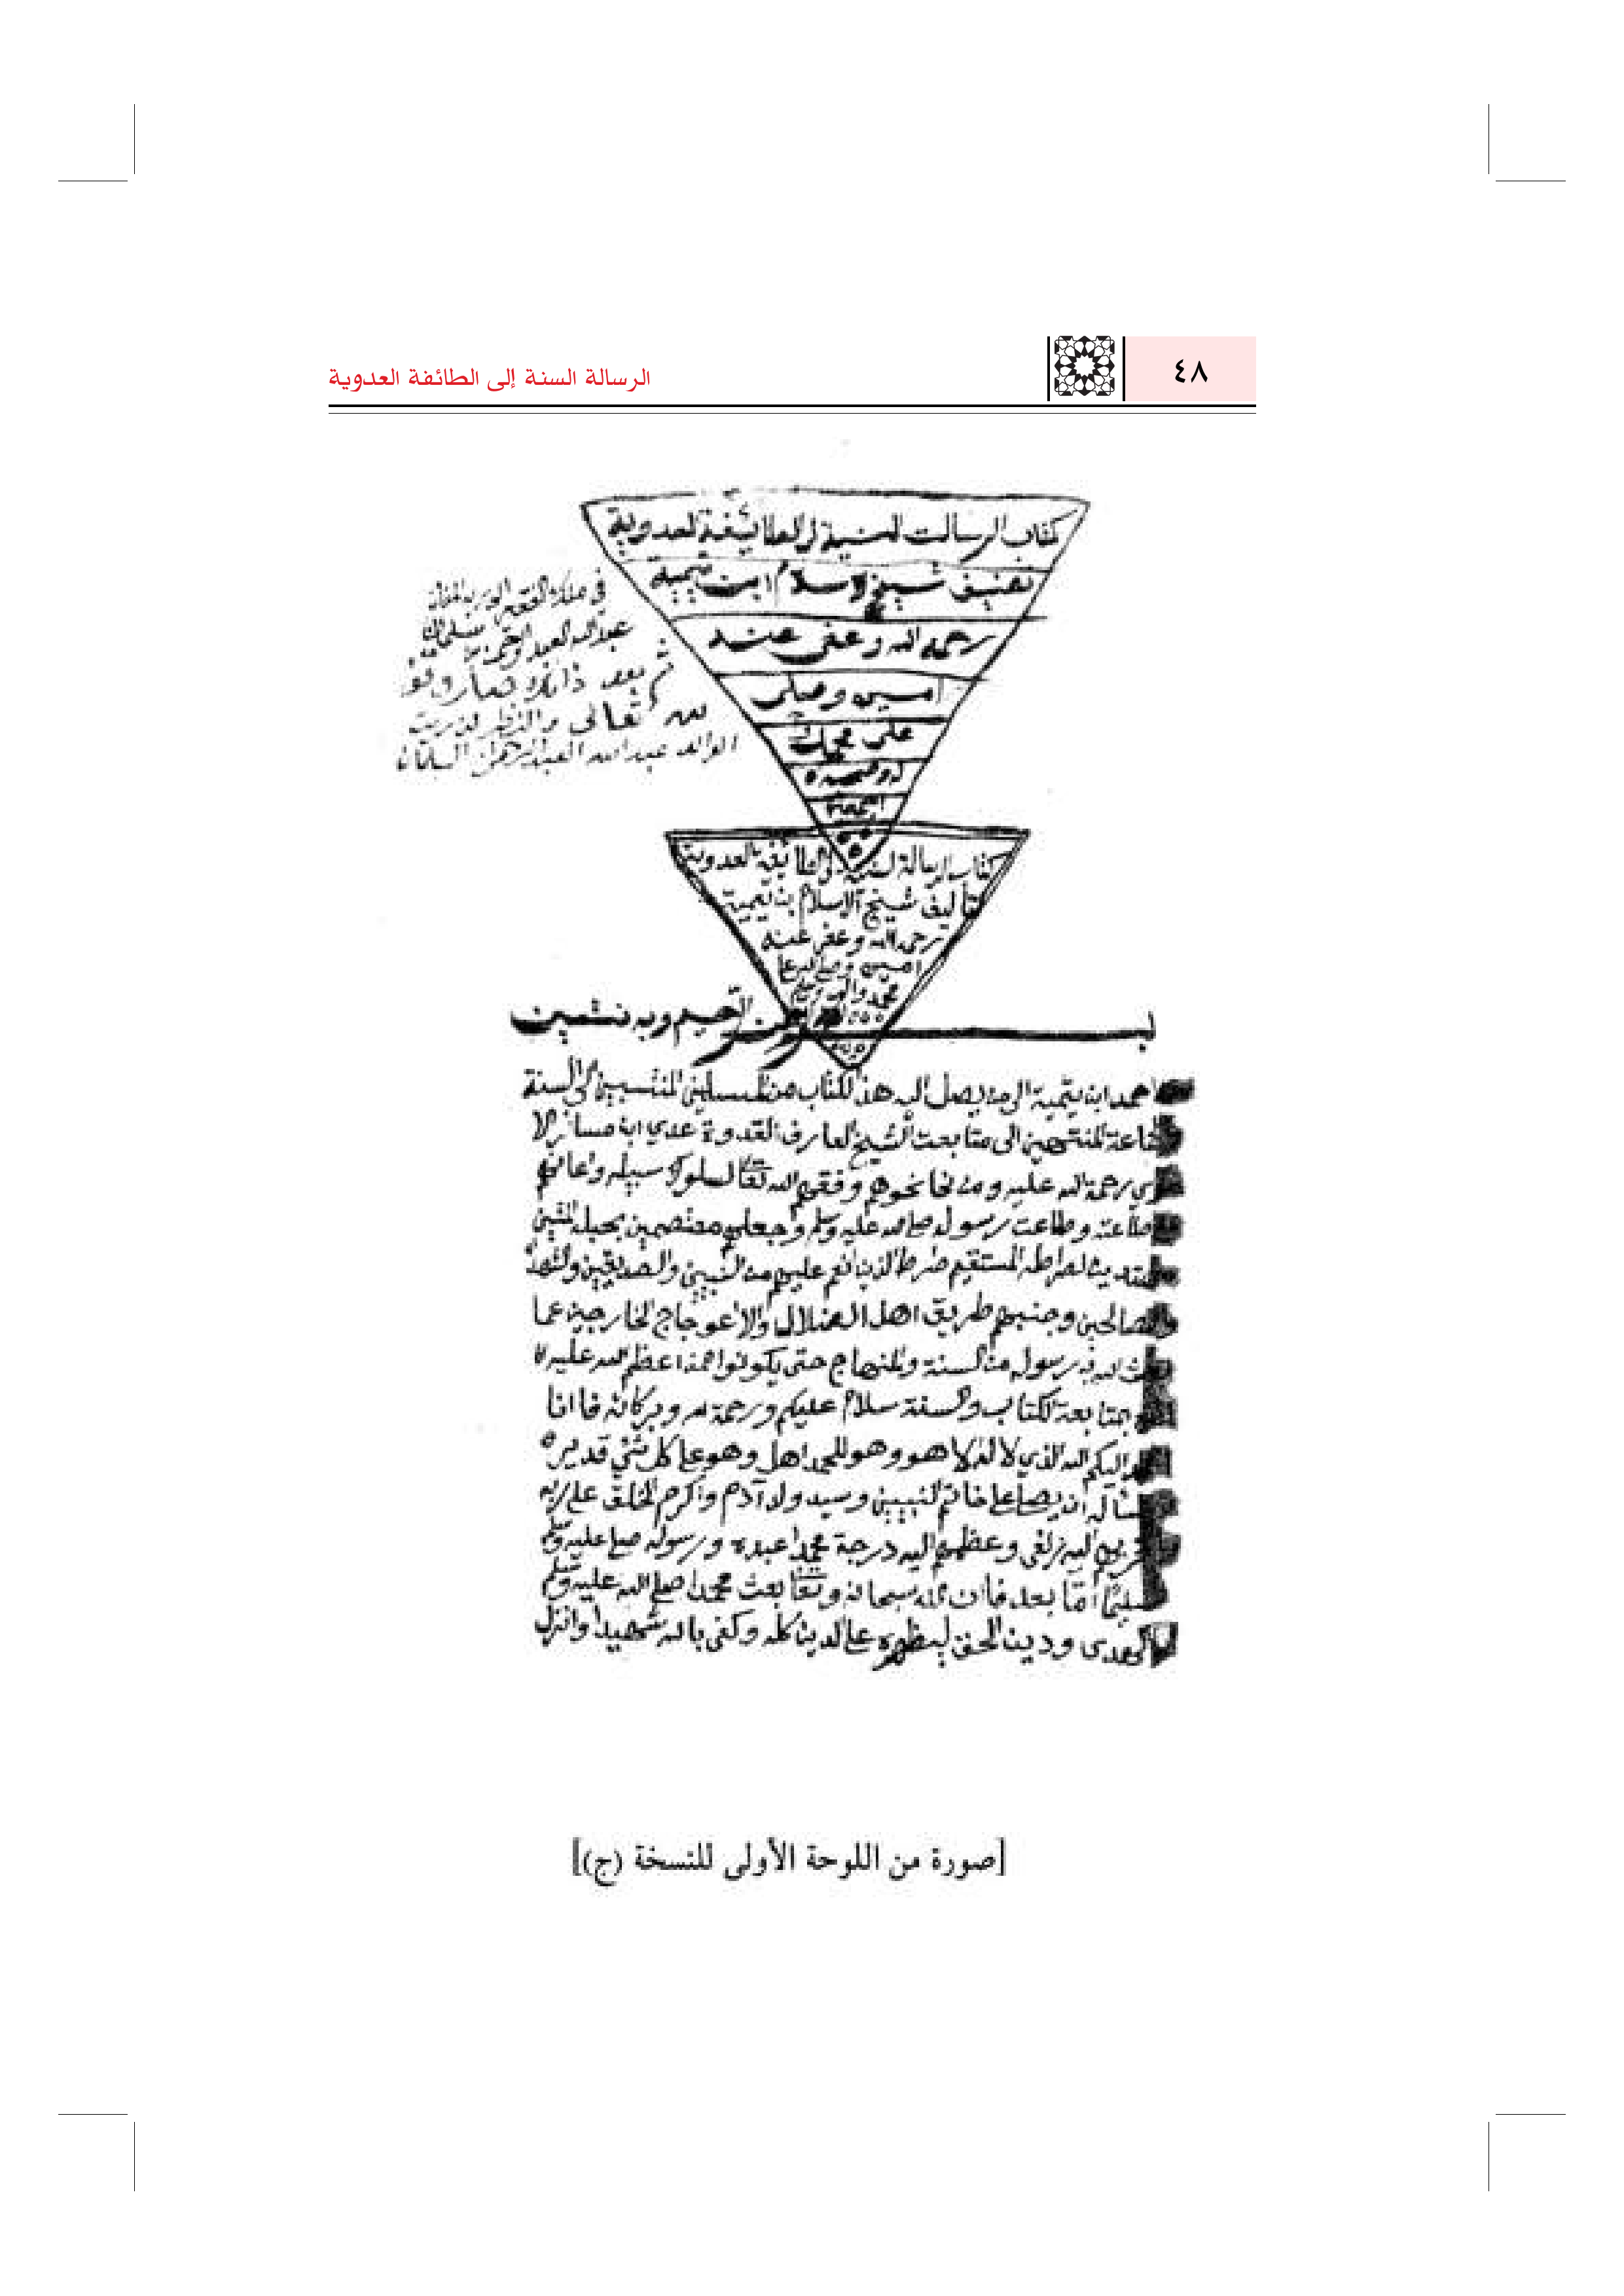 ٤٨
الرسالة السنة إلى الطائفة العدوية
كتاب الرسالت السنية إلى الطائيفة العدوية
تصنيف شيخ الاسلام ابن تيمية
رحمه الله وعفى عنه
امين وصلى
على محمد
اله وصحبه
اجمعين
في ملك الفقير
عبد الله العبد الرحمن
ثم بعد ذالك صار وقف
لله تعالى والنظر
الوالد عبد الله العبد الرحمن السلمان
كتاب الرسالة السنية إلى الطائيفة العدوية
تأليف شيخ الاسلام بن تيمية
رحمه الله وعفى عنه
امين
محمد واله
بسم الله الرحمن الرحيم وبه نستعين
احمد ابن تيمية الى من يصل اليه هذا الكتاب من المسلمين المنتسبين إلى السنة
المنتمين الى متابعت الشيخ العارف القدوة عدي ابن مسافر الا
موي رحمة الله عليه ومن نحا نحوهم وفقهم الله تعالى لسلوك سبيله واعانهم
طاعته وطاعت رسوله صلى الله عليه وسلم وجعلهم معتصمين بحبله المتين
مهتدين لصراطه المستقيم صراط الذين انعم عليهم من النبيين والصديقين والشهداء
والصالحين وجنبهم طريق اهل الضلال والاعوجاج الخارجين عما
بعث الله به رسوله من السنة والمنهاج حتى يكونوا ممن اعظم الله عليه
بمتابعة الكتاب والسنة سلام عليكم ورحمة الله وبركاته فاانا
نحمد اليكم الله الذي لا اله الا هو وهو للحمد اهل وهو على كل شئ قدير
ونسأله ان يصلي على خاتم النبيين وسيد ولد آدم واكرم الخلق على ربه
واقربهم اليه زلفى وعظمهم اليه درجة محمد عبده ورسوله صلى عليه وسلم
تسليمًا أمّا بعد فاان الله سبحانه وتعالى بعث محمدا صلى الله عليه وسلم
بالهدى ودين الحق ليظهره على الدين كله وكفى بالله شهيدا وانزل
[صورة من اللوحة الأولى للنسخة (ج)]